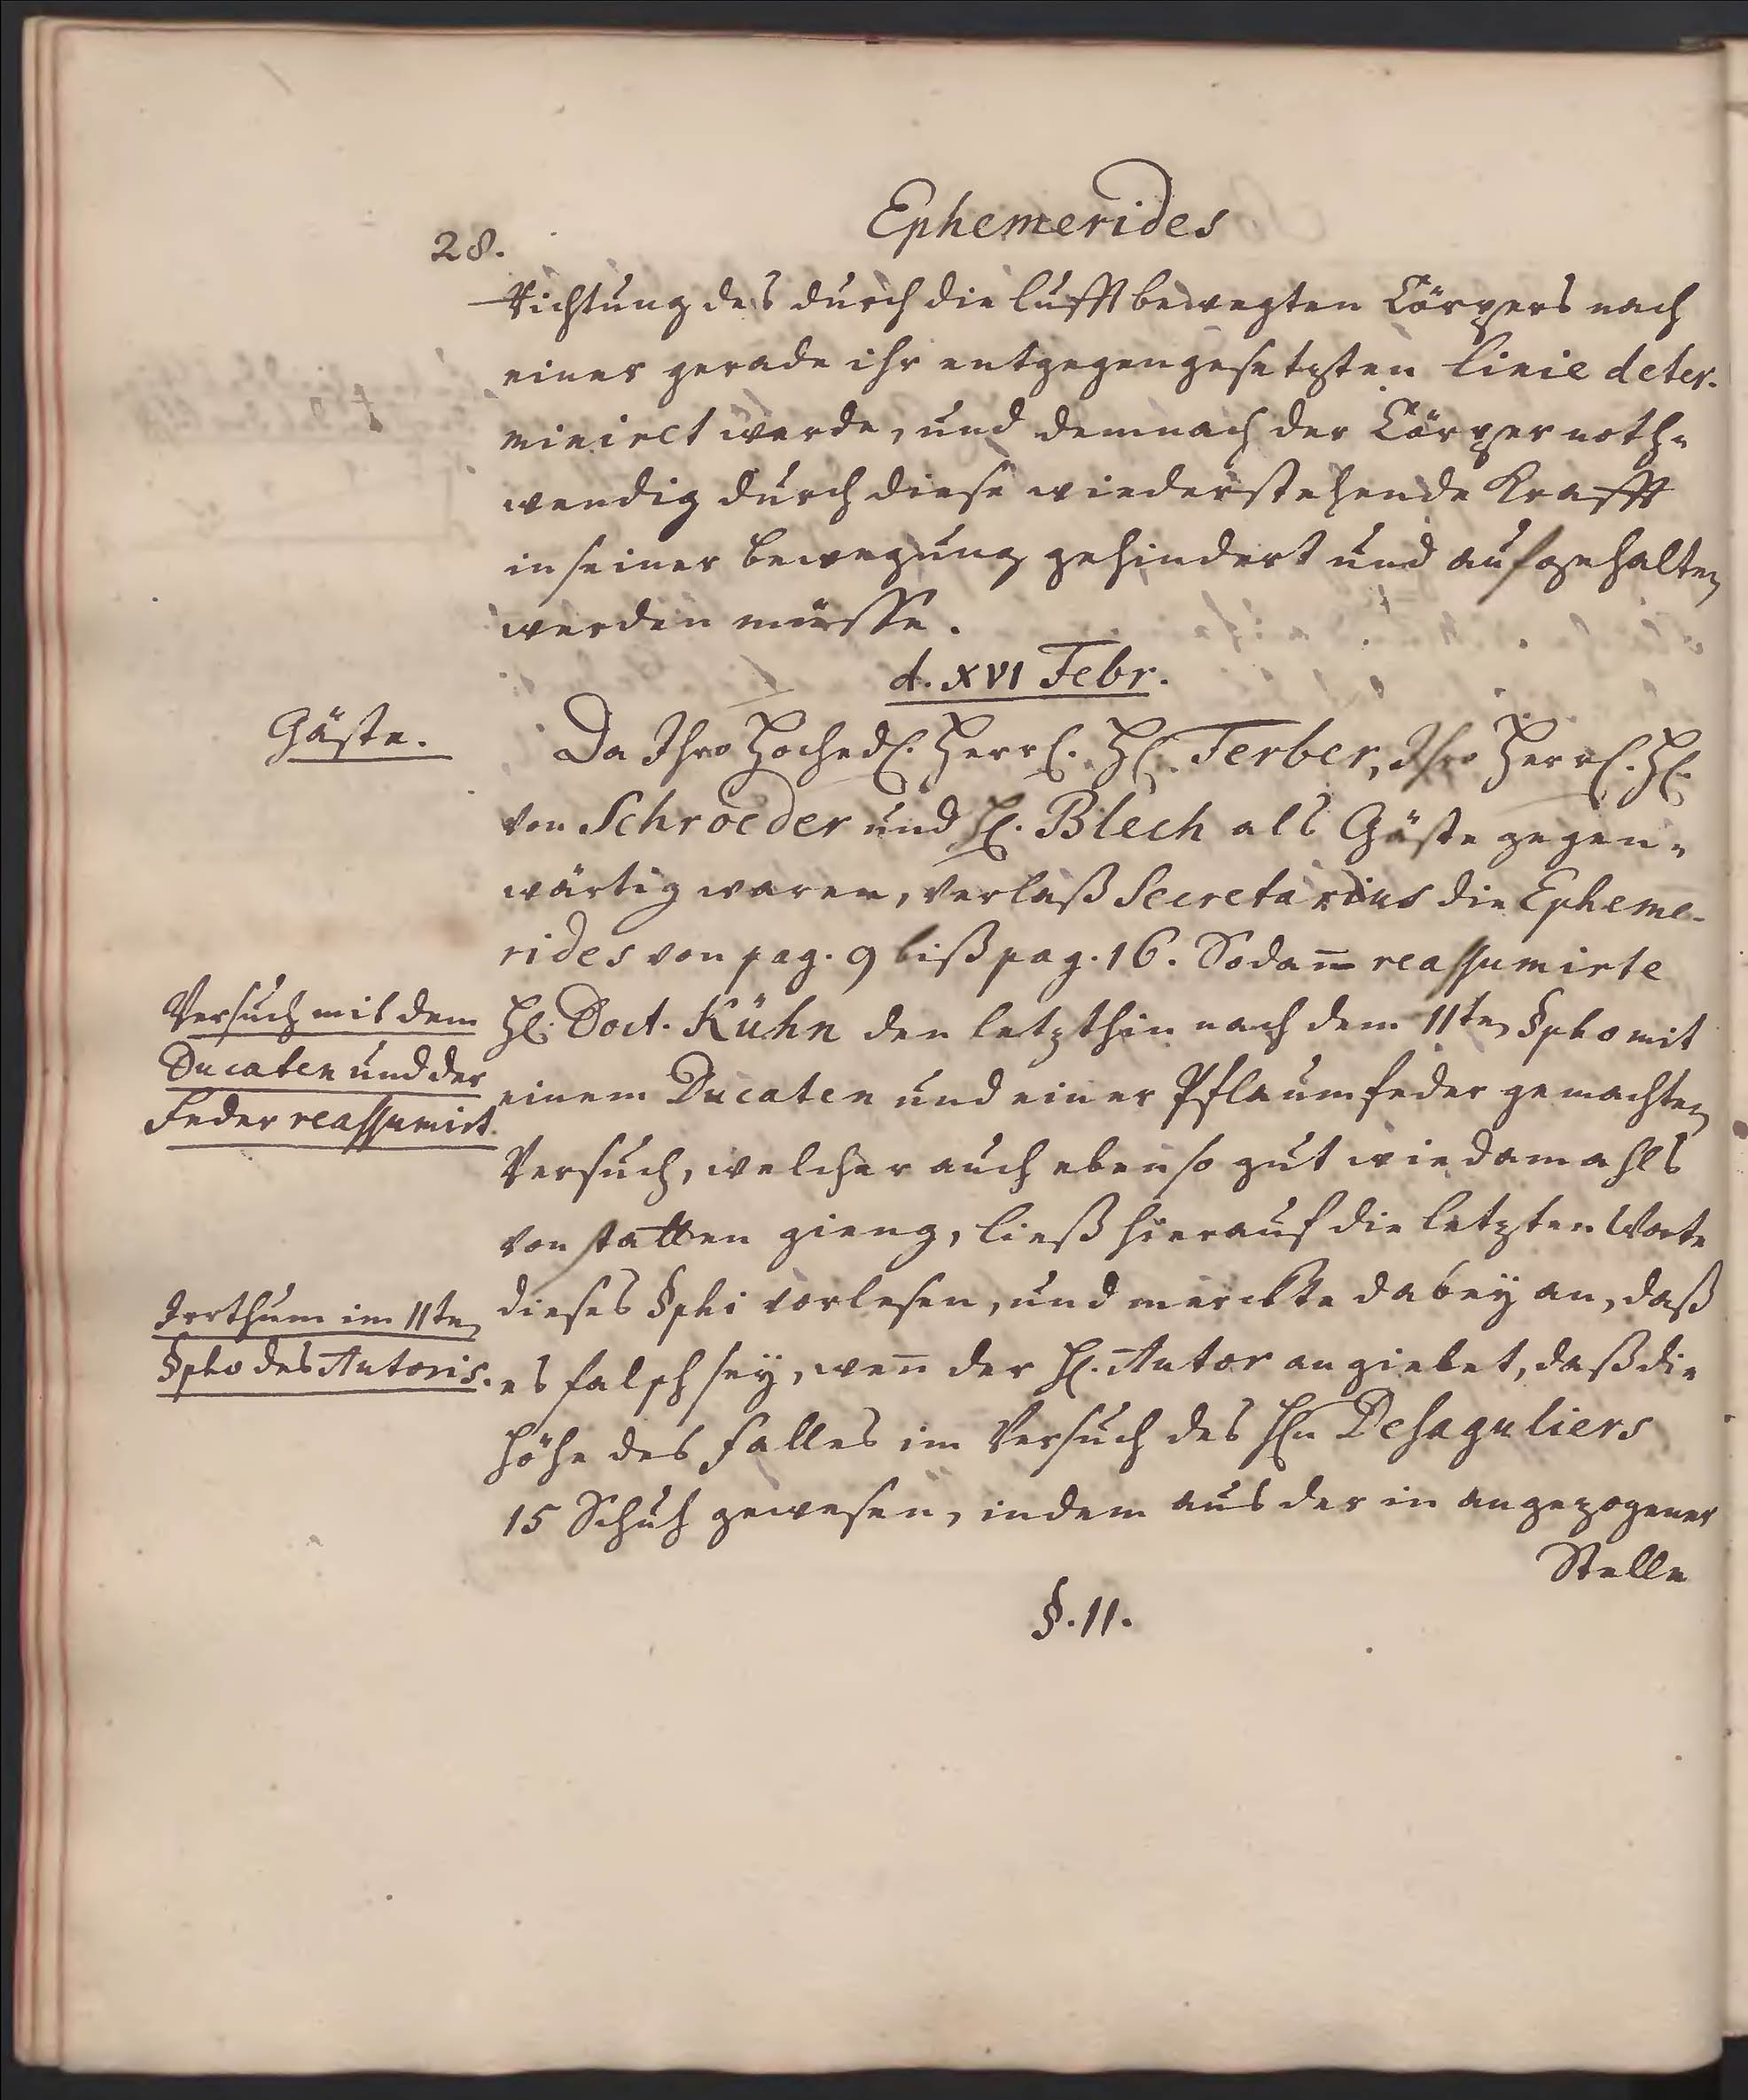 28.
Ephemerides
Richtung des durch die Lufft bewegten Cörpers nach
einer gerade ihr entgegengesetzten Linie deter-
miniret werde, und demnach der Cörper noth-
wendig durch diese wiederstehende Krafft
in seiner Bewegung gehindert und aufgehalten
werden müsse.
d. XVI Febr.
Gäste.
Da Ihro Hochedl. Herrl. Hl. Ferber, Ihro Herrl. Hl.
von Schroeder und Hl. Blech als Gäste gegen-
wärtig waren, verlaß Secretarius die Epheme-
rides von pag. 9 biß pag. 16. Sodann reassumirte
Versuch mit dem
Ducaten und der
Feder reassumirt.
Hl. Doct. Kühn den letzthin nach dem 11ten §pho mit
einem Ducaten und einer Pflaumfeder gemachten
Versuch, welcher auch eben so gut wie damahls
von statten gieng, ließ hierauf die letzten Worte
Irrthum im 11ten
§pho des Autoris.
dieses §phi vorlesen, und merckte dabey an, daß
es falsch sey, wen̄ der Hl. Autor angiebet, daß die
Höhe des Falles im Versuch des Hln Desaguliers
15 Schuh gewesen, indem aus der in angezogener
Stelle
§. 11.